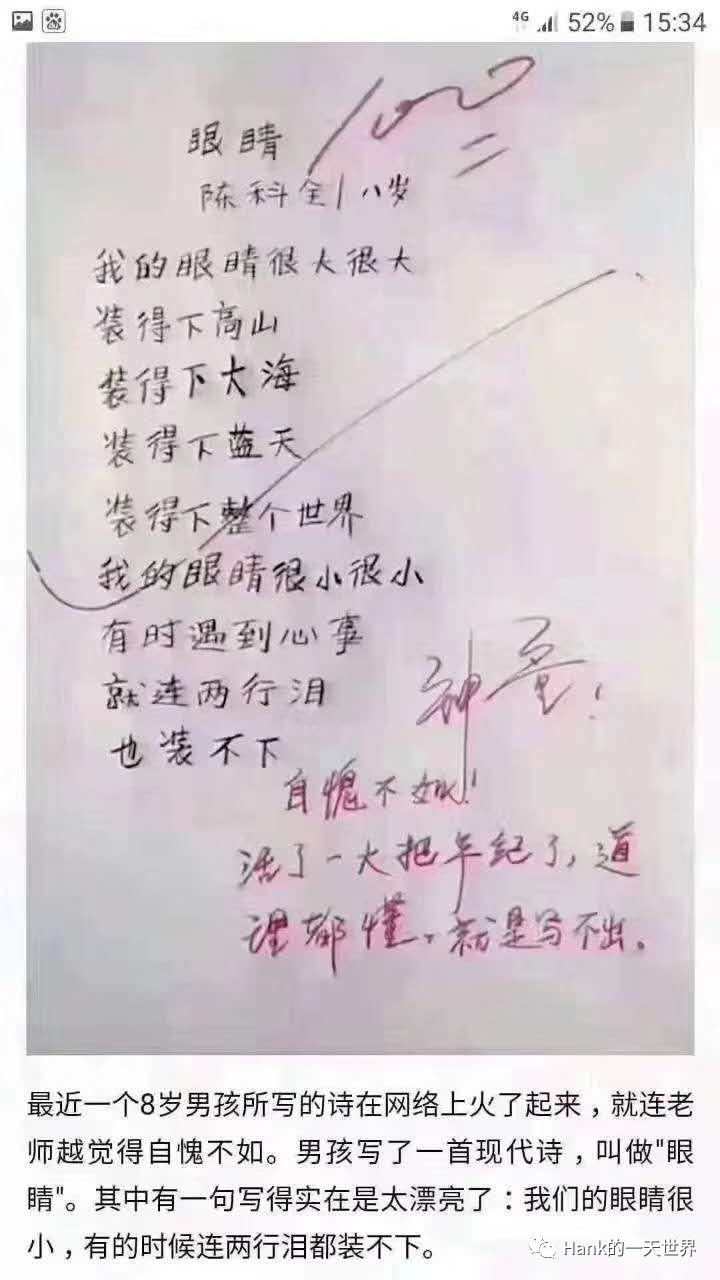 4G 52% 15:34
100
眼睛
陈科全/八岁
我的眼睛很大很大
装得下高山
装得下大海
装得下蓝天
装得下整个世界
我的眼睛很小很小
有时遇到心事
就连两行泪
也装不下
神童!
自愧不如!
活了一大把年纪了,道
理都懂。就是写不出。
最近一个8岁男孩所写的诗在网络上火了起来，就连老
师越觉得自愧不如。男孩写了一首现代诗，叫做"眼
睛"。其中有一句写得实在是太漂亮了：我们的眼睛很
小，有的时候连两行泪都装不下。
Hank的一天世界